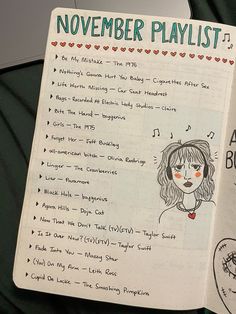 NOVEMBER PLAYLIST
Be My Mistake – The 1975
Nothing's Gonna Hurt You Baby – Cigarettes After Sex
Life Worth Missing – Car Seat Headrest
Bags – Recorded At Electric Lady Studios – Clairo
Bite The Hand – boygenius
Girls – The 1975
Forget Her – Jeff Buckley
all-american bitch – Olivia Rodrigo
Linger – The Cranberries
Liar – Paramore
Black Hole – boygenius
Agora Hills – Doja Cat
Now That We Don't Talk (TV)(FTV) – Taylor Swift
Is It Over Now? (TV)(FTV) – Taylor Swift
Fade Into You – Mazzy Star
(You) On My Arm – Leith Ross
Cupid De Locke – The Smashing Pumpkins